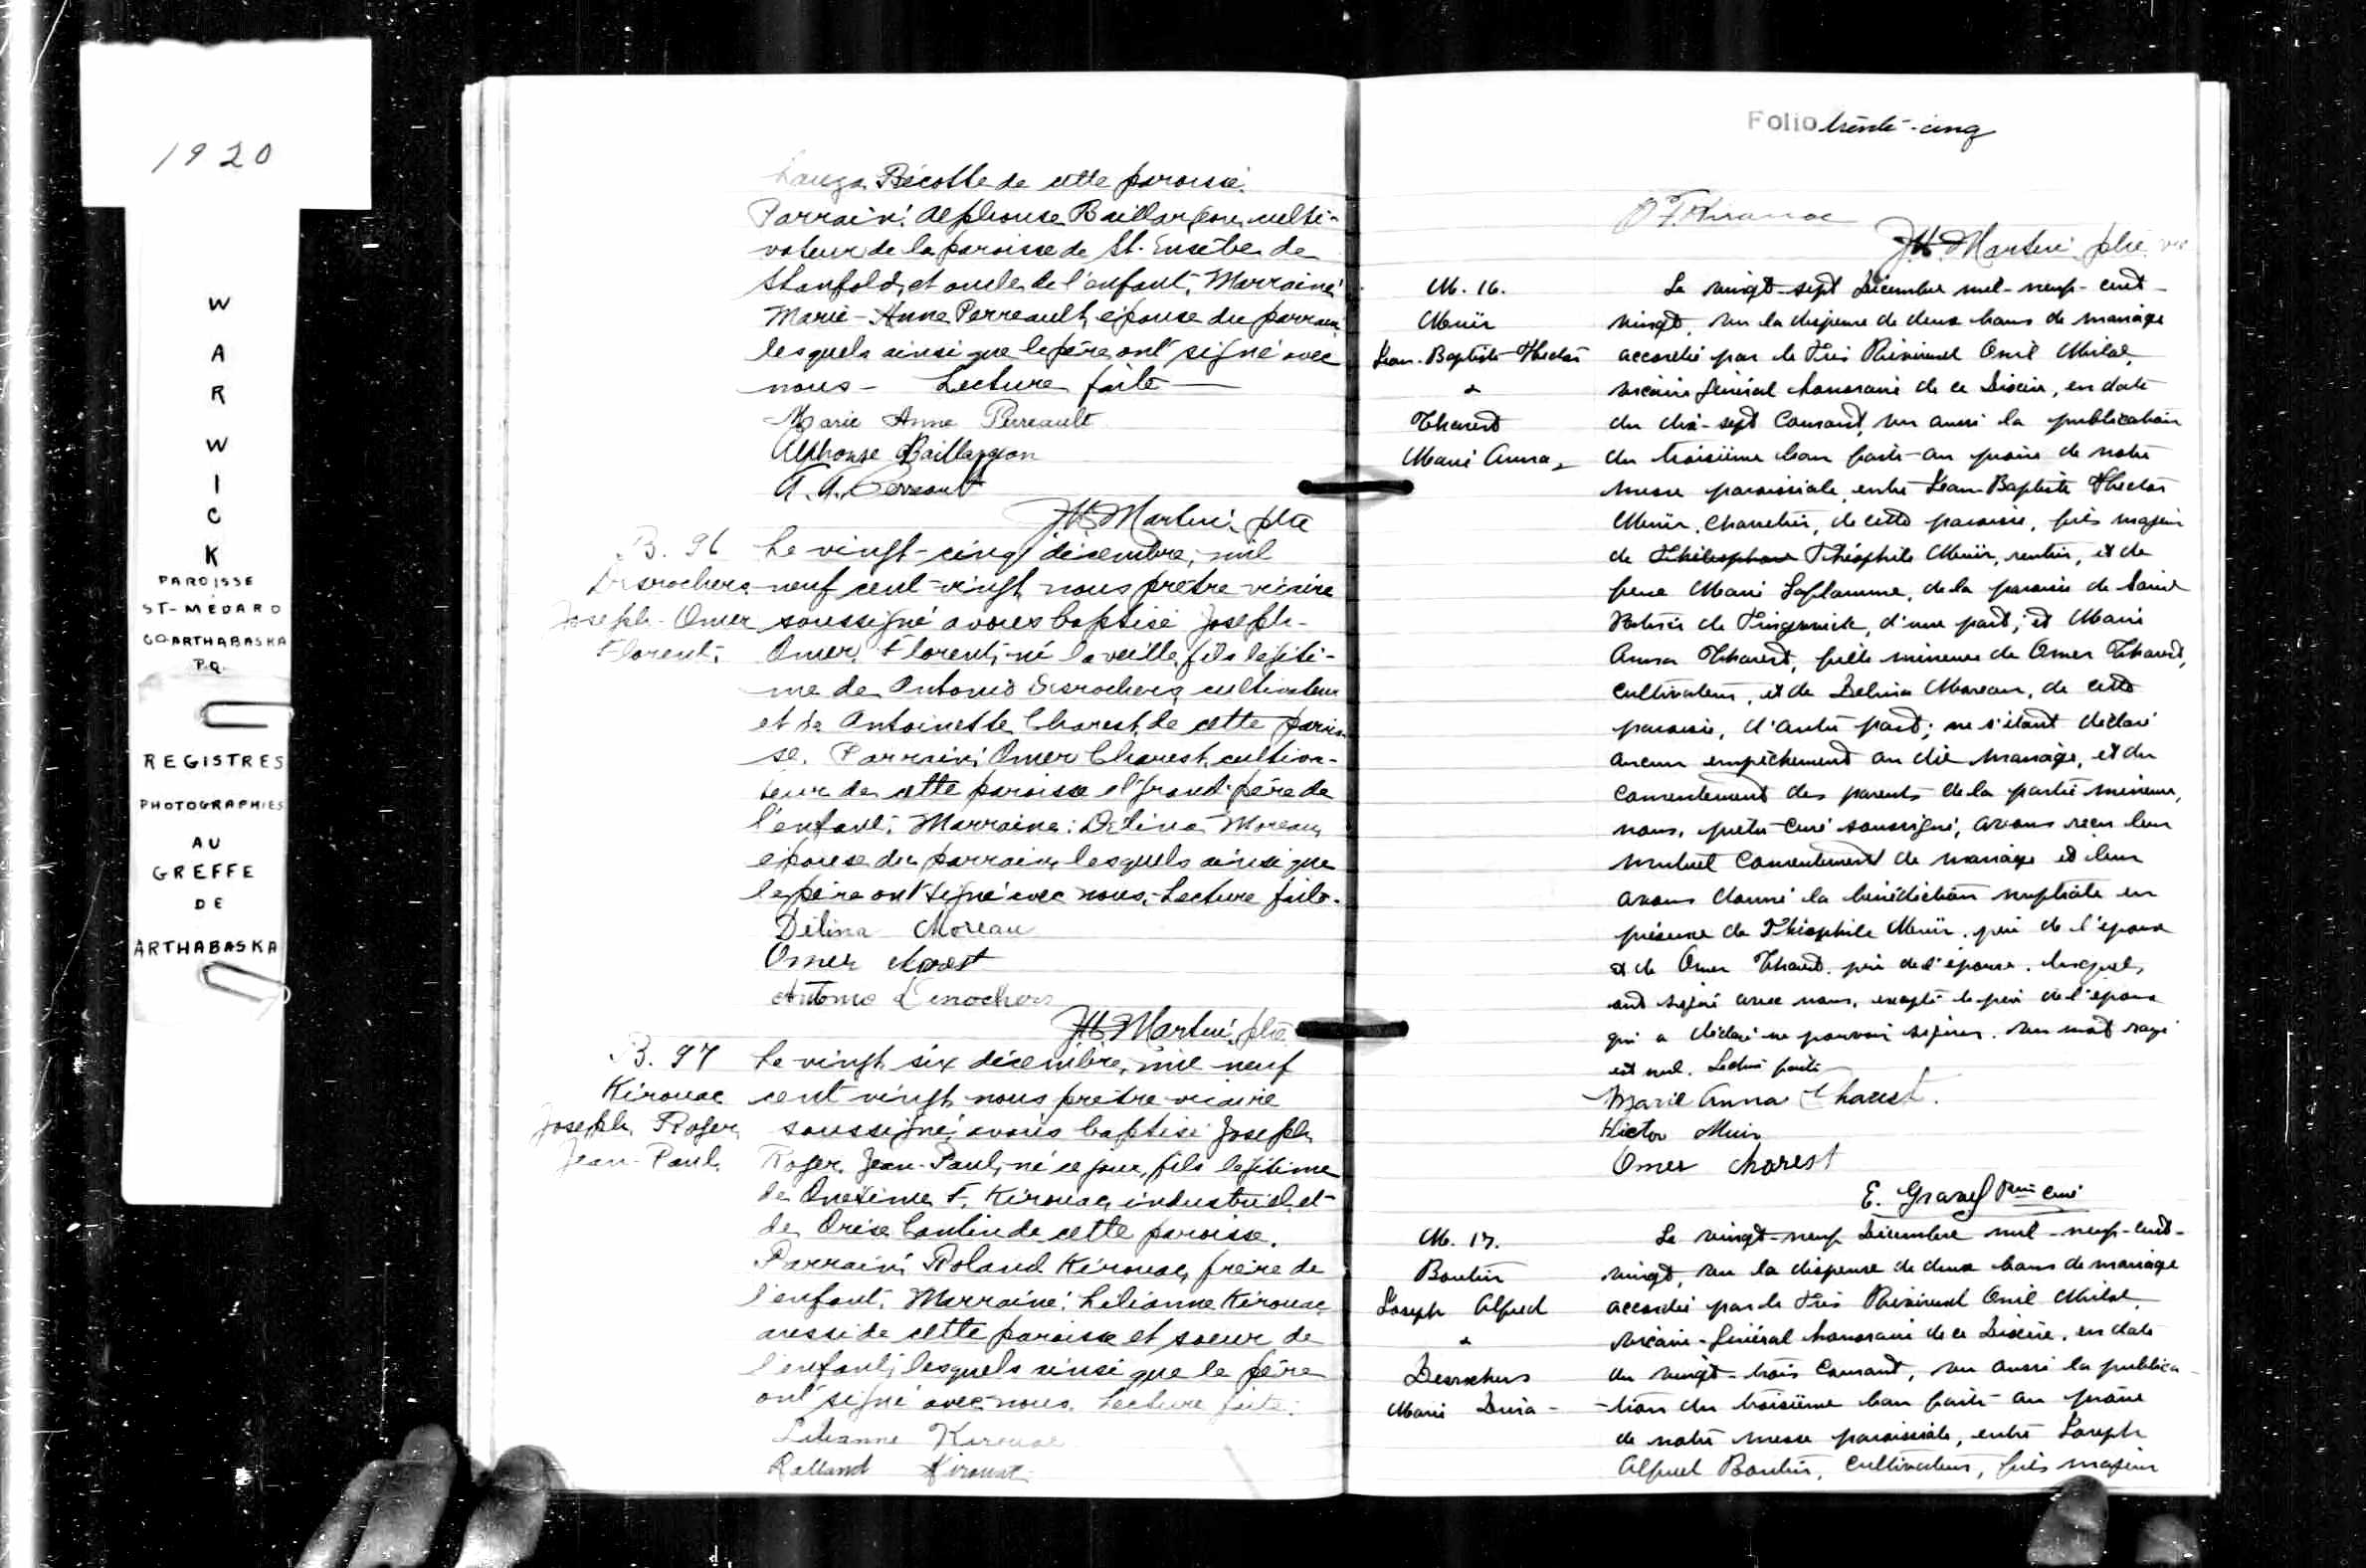 1920
WARWICK
PAROISSE
ST-MÉDARD
CO ARTHABASKA
P.Q.
REGISTRES
PHOTOGRAPHIES
AU
GREFFE
DE
ARTHABASKA
Bécotte de cette paroisse.
Parrain: Alphonse Baillargeon, culti-
vateur de la paroisse de St. Eusèbe de
Stanfold, et oncle de l'enfant; Marraine:
Marie-Anne Perreault, épouse du parrain
lesquels ainsi que le père ont signé avec
nous - Lecture faite -
Marie Anne Perreault
Alphonse Baillargeon
A. A. Perreault
J.H. Martin, ptre
B. 96
Desrochers
Joseph-Omer
Florent.
Le vingt-cinq décembre, mil
neuf cent-vingt nous prêtre-vicaire
soussigné avons baptisé Joseph-
Omer, Florent, né la veille, fils légiti-
me de Antonio Desrochers, cultivateur
et de Antoinette Charest, de cette parois
se. Parrain: Omer Charest, cultiva-
teur de cette paroisse et grand-père de
l'enfant; Marraine: Délina Moreau,
épouse du parrain, lesquels ainsi que
le père ont signé avec nous. Lecture faite.
Délina Moreau
Omer charest
Antonio Desrochers
J.H. Martin, ptre
B. 97
Kirouac
Joseph, Roger,
Jean-Paul.
Le vingt six décembre, mil neuf
cent vingt nous prêtre-vicaire
soussigné, avons baptisé Joseph,
Roger, Jean-Paul, né ce jour, fils légitime
de Onésime F. Kirouac, industriel, et
de Orise Cantin de cette paroisse.
Parrain: Roland Kirouac, frère de
l'enfant; Marraine: Lilianne Kirouac
aussi de cette paroisse et soeur de
l'enfant, lesquels ainsi que le père
ont signé avec nous. Lecture faite.
Lilianne Kirouac
Rolland Kirouac
Folio trente-cinq
O F. Kirouac
J.H. Martin, ptre vic
M. 16.
Muir
Jean-Baptiste Hector
&
Charest
Marie Anna
Le vingt-sept Décembre mil-neuf-cent-
vingt, vu la dispense de deux bans de mariage
accordée par le Très Révérend Onil Milot,
vicaire général honoraire de ce Diocèse, en date
du dix-sept Courant, vu aussi la publication
du troisième ban faite au prône de notre
messe paroissiale, entre Jean-Baptiste Hector
Muir, charretier, de cette paroisse, fils majeur
de Théophile Muir, rentier, et de
feue Marie Laflamme, de la paroisse de Saint
Patrice de Tingwick, d'une part; et Marie
Anna Charest, fille mineure de Omer Charest,
cultivateur, et de Delina Moreau, de cette
paroisse, d'autre part; ne s'étant déclaré
aucun empêchement au dit mariage, et du
consentement des parents de la partie mineure,
nous, prêtre-curé soussigné, avons reçu leur
mutuel consentement de mariage et leur
avons donné la bénédiction nuptiale en
présence de Théophile Muir, père de l'époux
et de Omer Charest, père de l'épouse, lesquels
ont signé avec nous, excepté le père de l'époux
qui a déclaré ne pouvoir signer. Un mot rayé
est nul. Lecture faite
Marie Anna Charest.
Hictor Muir
Omer charest
E. Gravel Ptre Curé
M. 17.
Boutin
Joseph Alfred
&
Desrochers
Marie
Le vingt-neuf Décembre mil-neuf-cent-
vingt, vu la dispense de deux bans de mariage
accordée par le Très Révérend Onil Milot,
vicaire-général honoraire de ce Diocèse, en date
du vingt-trois Courant, vu aussi la publica-
-tion du troisième ban faite au prône
de notre messe paroissiale, entre Joseph
Alfred Boutin, Cultivateur, fils majeur